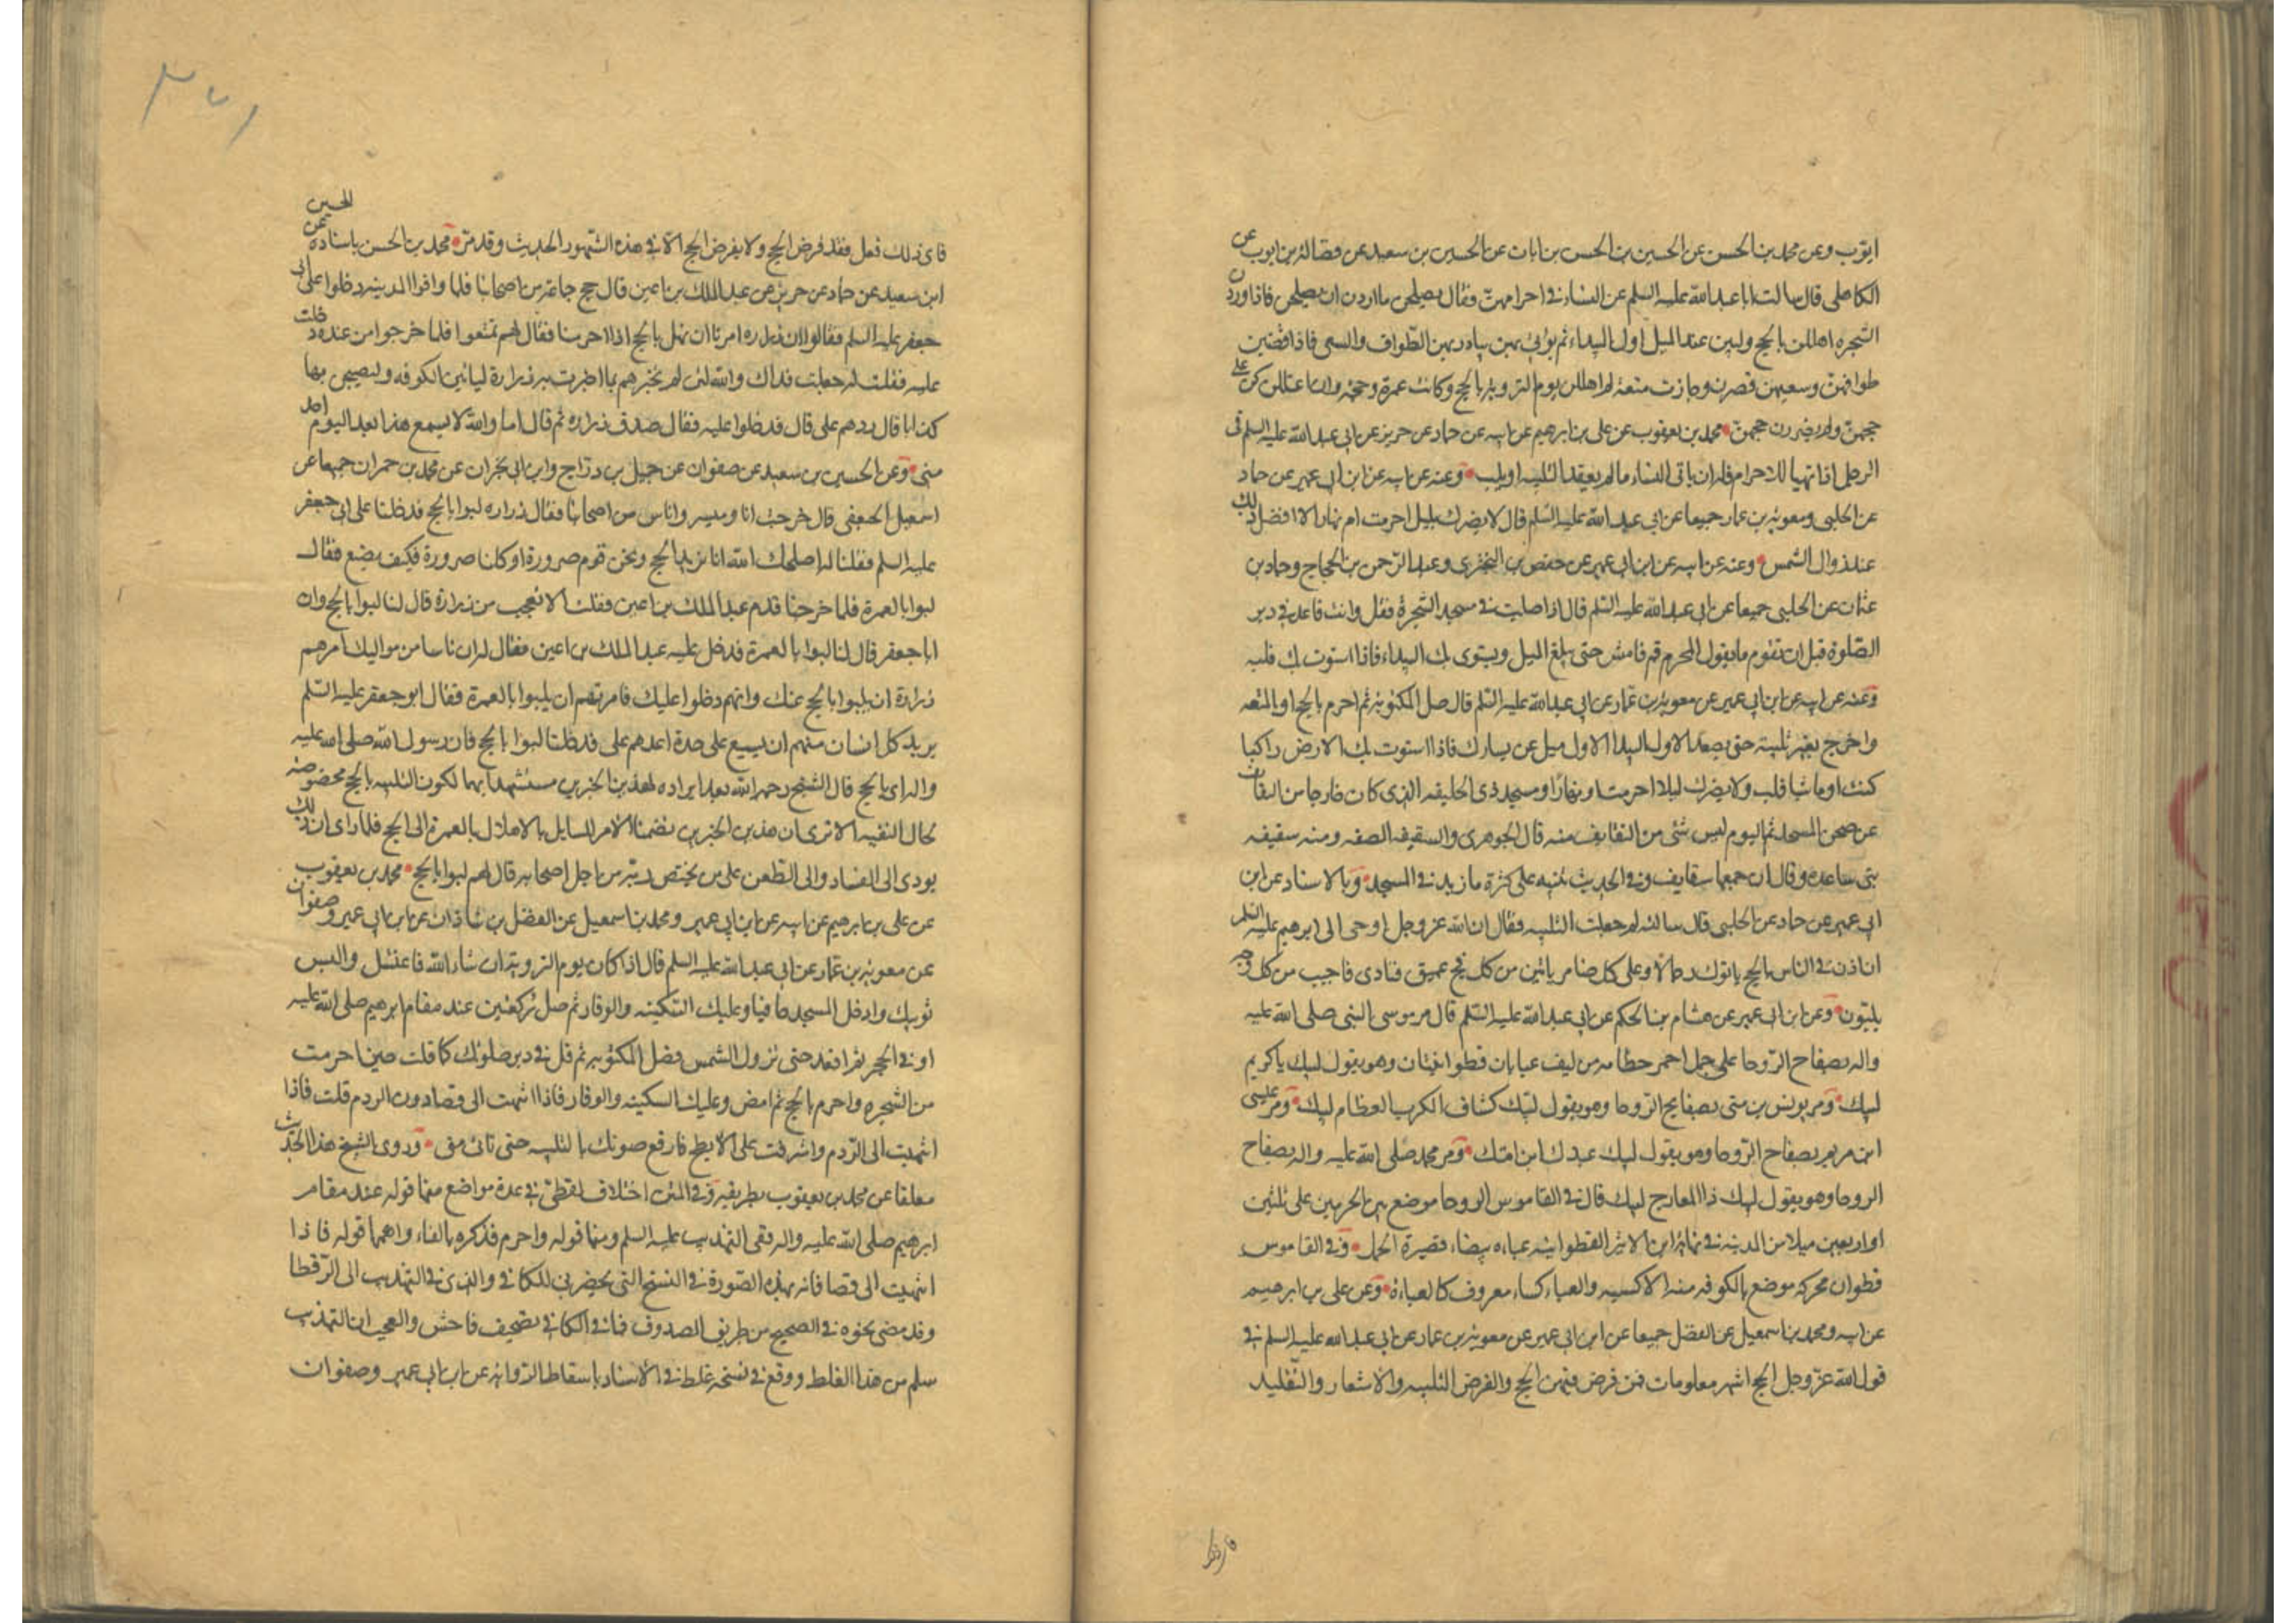 ايوب وعن محمد بن الحسن عن الحسين بن الحسن بن ابان عن الحسين بن سعيد عن فضالة بن ايوب عن
الكاهلى قال سالت ابا عبد الله عليه السلم عن النساء فى احرامهن فقال يصلحن ما اردن ان يصلحن فاذا وردن
الشجره اهللن بالحج ولبين عند الميل اول البيداء ثم يؤتى بهن يبادر بهن الطواف والسعى فاذا قضين
طوافهن وسعيهن قصرن وجازت متعة ثم اهللن يوم التروية بالحج وكانت عمرة وحجة وان اعتللن كن على
حجهن ولم يضررن حجهن محمد بن يعقوب عن على بن ابرهيم عن ابيه عن حماد عن حريز عن ابى عبد الله عليه السلم فى
الرجل اذا تهيأ للاحرام فله ان ياتى النساء ما لم يعقد التلبيه او يلب وعنه عن ابيه عن ابن ابى عمير عن حماد
عن الحلبى ومعوية بن عمار جميعا عن ابى عبد الله عليه السلم قال لا يضرك بليل احرمت ام نهار الا ان افضل ذلك
عند زوال الشمس وعنه عن ابيه عن ابن ابى عمير عن حفص بن البخترى وعبد الرحمن بن الحجاج وحماد بن
عثمان عن الحلبى جميعا عن ابى عبد الله عليه السلم قال اذا صليت فى مسجد الشجرة فقل وانت قاعد فى دبر
الصلوة قبل ان تقوم ما يقول المحرم ثم قم فامش حتى يبلغ الميل ويستوى بك البيداء فاذا استوت بك فلبه
وعنه عن ابيه عن ابن ابى عمير عن معوية بن عمار عن ابى عبد الله عليه السلم قال صل المكتوبة ثم احرم بالحج او بالمتعه
واخرج بغير تلبية حتى يصعد الاول البيدا الاول ميل عن يسارك فاذا استوت بك الارض راكبا
كنت او ماشيا فلب ولا يضرك ليلا احرمت او نهارا ومسجد ذى الحليفه الذى كان خارجا من السقائف
عن صحن المسجد ثم اليوم ليس شئ من السقايف منه قال الجوهرى والسقيفه الصفه ومنه سقيفه
بنى ساعده وقال ان جمعها سقايف وفى الحديث تنبيه على كثرة ما زيد فى المسجد وبالاسناد عن ابن
ابى عمير عن حماد عن الحلبى قال سالته لم جعلت التلبيه فقال ان الله عز وجل اوحى الى ابرهيم عليه السلم
ان اذن فى الناس بالحج ياتوك رجالا وعلى كل ضامر ياتين من كل فج عميق فنادى فاجيب من كل وجه
يلبون وعن ابن ابى عمير عن هشام بن الحكم عن ابى عبد الله عليه السلم قال مر موسى النبى صلى الله عليه
واله بصفاح الروحا على جمل احمر خطامه من ليف عليه عبايتان قطوانيتان وهو يقول لبيك يا كريم
لبيك ومر يونس بن متى بصفايح الروحا وهو يقول لبيك كشاف الكرب العظام لبيك ومر عيسى
ابن مريم بصفاح الروحا وهو يقول لبيك عبدك ابن امتك ومر محمد صلى الله عليه واله بصفاح
الروحا وهو يقول لبيك ذا المعارج لبيك قال فى القاموس الروحا موضع بين الحرمين على ثلثين
او اربعين ميلا من المدينه فى نهاية ابن الاثير القطوانيه عباءه بيضاء قصيرة الخمل وفى القاموس
قطوان محركه موضع بالكوفه منه الاكسيه والعباء كساء معروف كالعباءة وعن على بن ابرهيم
عن ابيه ومحمد بن اسمعيل عن الفضل جميعا عن ابن ابى عمير عن معوية بن عمار عن ابى عبد الله عليه السلم فى
قول الله عز وجل الحج اشهر معلومات فمن فرض فيهن الحج والفرض التلبيه والاشعار والتقليد
٣٧١
فاى ذلك فعل فقد فرض الحج ولا يفرض الحج الا فى هذه الشهور الحديث وقد مر محمد بن الحسن باسناده عن الحسين
ابن سعيد عن حماد عن حريز عن عبد الملك بن اعين قال حج جماعة من اصحابنا فلما وافوا المدينه دخلوا على ابى
جعفر عليه السلم فقالوا ان زراره امرنا ان نهل بالحج اذا احرمنا فقال لهم تمتعوا فلما خرجوا من عنده دخلت
عليه فقلت له جعلت فداك والله لئن لم تخبرهم بما اخبرت به زرارة لياتين الكوفه وليصبحن بها
كذابا قال ردهم على قال فدخلوا عليه فقال صدق زراره ثم قال اما والله لا يسمع هذا بعد اليوم احد
منى وعن الحسين بن سعيد عن صفوان عن جميل بن دراج وابن ابى نجران عن محمد بن حمران جميعا عن
اسمعيل الجعفى قال خرجت انا وميسر واناس من اصحابنا فقال زراره لبوا بالحج فدخلنا على ابى جعفر
عليه السلم فقلنا له اصلحك الله انا نريد الحج ونحن قوم صرورة او كلنا صرورة فكيف نصنع فقال
لبوا بالعمرة فلما خرجنا قدم عبد الملك بن اعين فقلت الا تعجب من زرارة قال لنا لبوا بالحج وان
ابا جعفر قال لنا لبوا بالعمرة فدخل عليه عبد الملك بن اعين فقال له ان ناسا من مواليك امرهم
زرارة ان يلبوا بالحج عنك وانهم دخلوا عليك فامرتهم ان يلبوا بالعمرة فقال ابو جعفر عليه السلم
يريد كل انسان منهم ان يسمع على حدة اعدهم على فدخلنا لبوا بالحج فان رسول الله صلى الله عليه
واله راى بالحج قال الشيخ رحمه الله بعد ايراده لهذين الخبرين مستشهدا بهما لكون التلبيه بالحج مخصوصه
بحال التقيه الا ترى ان هذين الخبرين تضمنا الامر للسايل بالاهلال بالعمرة الى الحج فلما راى ان ذلك
يودى الى الفساد والى الطعن على من يختص به من اجل اصحابه قال لهم لبوا بالحج محمد بن يعقوب
عن على بن ابرهيم عن ابيه عن ابن ابى عمير ومحمد بن اسمعيل عن الفضل بن شاذان عن ابن ابى عمير وصفوان
عن معوية بن عمار عن ابى عبد الله عليه السلم قال اذا كان يوم التروية ان شاء الله فاغتسل والبس
ثوبيك وادخل المسجد حافيا وعليك السكينه والوقار ثم صل ركعتين عند مقام ابرهيم صلى الله عليه
او فى الحجر ثم اقعد حتى تزول الشمس فصل المكتوبه ثم قل فى دبر صلوتك كما قلت حين احرمت
من الشجره واحرم بالحج ثم امض وعليك السكينه والوقار فاذا انتهيت الى فضا دون الردم قلت فاذا
انتهيت الى الردم واشرفت على الابطح فارفع صوتك بالتلبيه حتى تاتى منى وروى الشيخ هذا الحديث
معلقا عن محمد بن يعقوب بطريقيه وفى المتن اختلاف لفظى فى عدة مواضع منها قوله عند مقام
ابرهيم صلى الله عليه واله ففى التهذيب عليه السلم ومنها قوله واحرم فذكره بالفاء واهمها قوله فاذا
انتهيت الى فضا فانه بهذه الصورة فى النسخ التى يحضرنى للكافى والذى فى التهذيب الى الرقطا
وقد مضى نحوه فى الصحيح من طريق الصدوق فما فى الكافى تصحيف فاحش والعجب ان التهذيب
سلم من هذا الغلط ووقع فى نسخه غلط فى الاسناد باسقاط الرواية عن ابن ابى عمير وصفوان